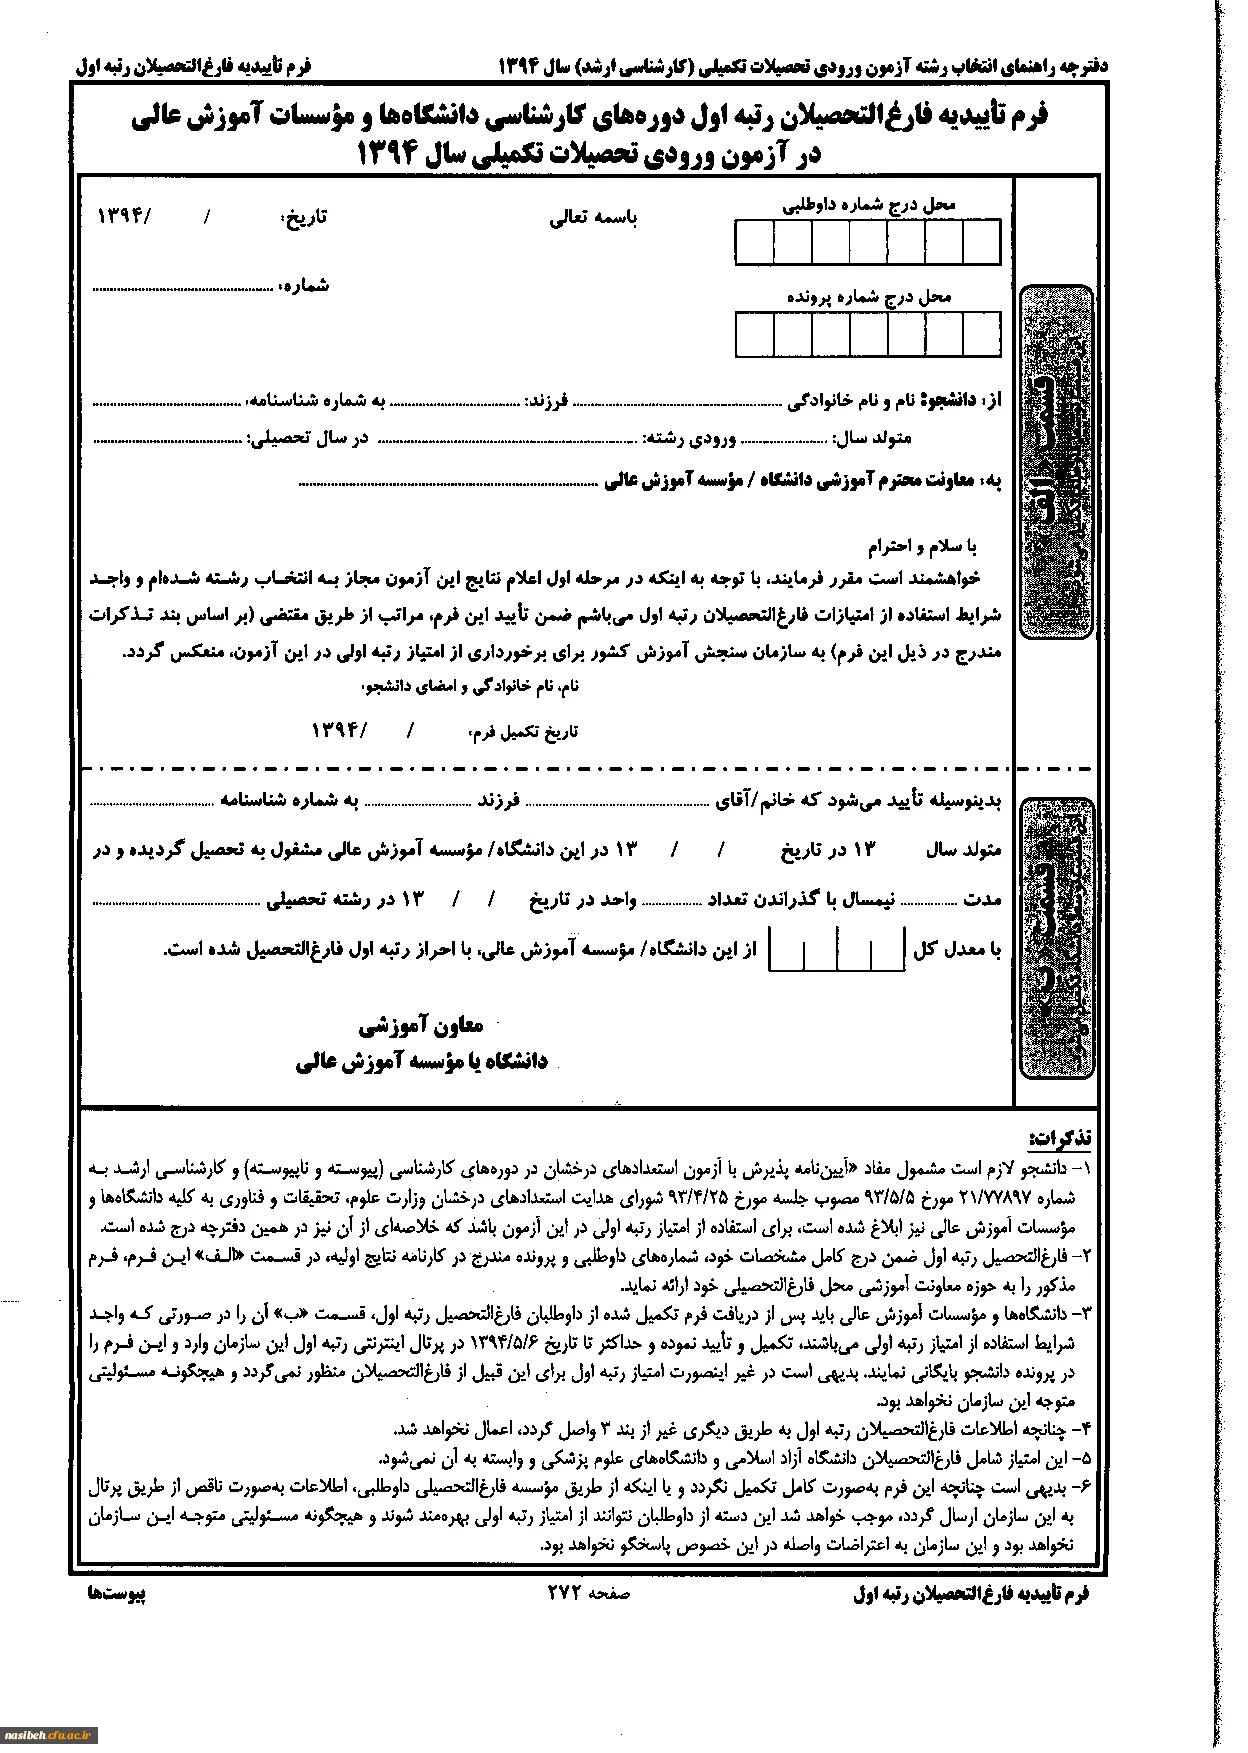 دفترچه راهنمای انتخاب رشته آزمون ورودی تحصیلات تکمیلی (کارشناسی ارشد) سال ۱۳۹۴ فرم تأییدیه فارغ‌التحصیلان رتبه اول
فرم تأییدیه فارغ‌التحصیلان رتبه اول دوره‌های کارشناسی دانشگاه‌ها و مؤسسات آموزش عالی
در آزمون ورودی تحصیلات تکمیلی سال ۱۳۹۴
محل درج شماره داوطلبی
باسمه تعالی
تاریخ: / /۱۳۹۴
شماره: ........................
محل درج شماره پرونده
قسمت «الف»
از: دانشجو: نام و نام خانوادگی ........................ فرزند: ........................ به شماره شناسنامه: ........................
متولد سال: ........................ ورودی رشته: ........................ در سال تحصیلی: ........................
به: معاونت محترم آموزشی دانشگاه / مؤسسه آموزش عالی ........................
با سلام و احترام
خواهشمند است مقرر فرمایند، با توجه به اینکه در مرحله اول اعلام نتایج این آزمون مجاز به انتخاب رشته شده‌ام و واجد
شرایط استفاده از امتیازات فارغ‌التحصیلان رتبه اول می‌باشم ضمن تأیید این فرم، مراتب از طریق مقتضی (بر اساس بند تذکرات
مندرج در ذیل این فرم) به سازمان سنجش آموزش کشور برای برخورداری از امتیاز رتبه اولی در این آزمون، منعکس گردد.
نام، نام خانوادگی و امضای دانشجو:
تاریخ تکمیل فرم: / /۱۳۹۴
قسمت «ب»
بدینوسیله تأیید می‌شود که خانم/آقای ........................ فرزند ........................ به شماره شناسنامه ........................
متولد سال ۱۳ در تاریخ / / ۱۳ در این دانشگاه/ مؤسسه آموزش عالی مشغول به تحصیل گردیده و در
مدت ............ نیمسال با گذراندن تعداد ............ واحد در تاریخ / / ۱۳ در رشته تحصیلی ........................
با معدل کل از این دانشگاه/ مؤسسه آموزش عالی، با احراز رتبه اول فارغ‌التحصیل شده است.
معاون آموزشی
دانشگاه یا مؤسسه آموزش عالی
تذکرات:
۱- دانشجو لازم است مشمول مفاد «آیین‌نامه پذیرش با آزمون استعدادهای درخشان در دوره‌های کارشناسی (پیوسته و ناپیوسته) و کارشناسی ارشد به
شماره ۲۱/۷۷۸۹۷ مورخ ۹۳/۵/۵ مصوب جلسه مورخ ۹۳/۴/۲۵ شورای هدایت استعدادهای درخشان وزارت علوم، تحقیقات و فناوری به کلیه دانشگاه‌ها و
مؤسسات آموزش عالی نیز ابلاغ شده است، برای استفاده از امتیاز رتبه اولی در این آزمون باشد که خلاصه‌ای از آن نیز در همین دفترچه درج شده است.
۲- فارغ‌التحصیل رتبه اول ضمن درج کامل مشخصات خود، شماره‌های داوطلبی و پرونده مندرج در کارنامه نتایج اولیه، در قسمت «الف» این فرم، فرم
مذکور را به حوزه معاونت آموزشی محل فارغ‌التحصیلی خود ارائه نماید.
۳- دانشگاه‌ها و مؤسسات آموزش عالی باید پس از دریافت فرم تکمیل شده از داوطلبان فارغ‌التحصیل رتبه اول، قسمت «ب» آن را در صورتی که واجد
شرایط استفاده از امتیاز رتبه اولی می‌باشند، تکمیل و تأیید نموده و حداکثر تا تاریخ ۱۳۹۴/۵/۶ در پرتال اینترنتی رتبه اول این سازمان وارد و این فرم را
در پرونده دانشجو بایگانی نمایند. بدیهی است در غیر اینصورت امتیاز رتبه اول برای این قبیل از فارغ‌التحصیلان منظور نمی‌گردد و هیچگونه مسئولیتی
متوجه این سازمان نخواهد بود.
۴- چنانچه اطلاعات فارغ‌التحصیلان رتبه اول به طریق دیگری غیر از بند ۳ واصل گردد، اعمال نخواهد شد.
۵- این امتیاز شامل فارغ‌التحصیلان دانشگاه آزاد اسلامی و دانشگاه‌های علوم پزشکی و وابسته به آن نمی‌شود.
۶- بدیهی است چنانچه این فرم به‌صورت کامل تکمیل نگردد و یا اینکه از طریق مؤسسه فارغ‌التحصیلی داوطلبی، اطلاعات به‌صورت ناقص از طریق پرتال
به این سازمان ارسال گردد، موجب خواهد شد این دسته از داوطلبان نتوانند از امتیاز رتبه اولی بهره‌مند شوند و هیچگونه مسئولیتی متوجه این سازمان
نخواهد بود و این سازمان به اعتراضات واصله در این خصوص پاسخگو نخواهد بود.
فرم تأییدیه فارغ‌التحصیلان رتبه اول صفحه ۲۷۲ پیوست‌ها
nasibeh.cfu.ac.ir